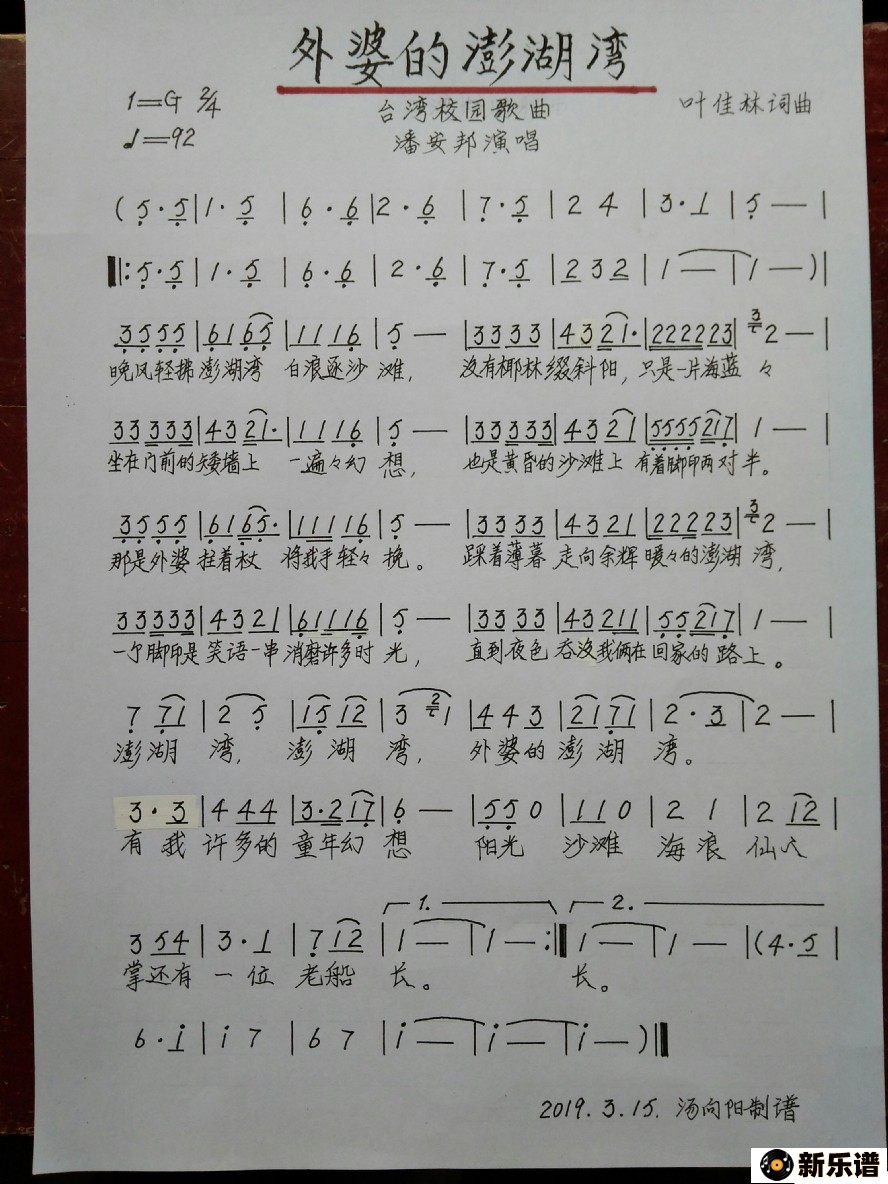 外婆的澎湖湾
1=G 2/4
台湾校园歌曲
叶佳林词曲
♩=92
潘安邦演唱
(5·5|1·5|6·6|2·6|7·5|2 4|3·1|5—|
‖:5·5|1·5|6·6|2·6|7·5|232|1—|1—)|
3555|6165|1116|5—|3333|4321·|222223|3 2—|
晚风轻拂澎湖湾 白浪逐沙滩, 没有椰林缀斜阳, 只是一片海蓝々
33333|4321·|1116|5—|33333|4321|5555217|1—|
坐在门前的矮墙上 一遍々幻想, 也是黄昏的沙滩上 有着脚印两对半。
3555|6165·|11116|5—|3333|4321|222223|3 2—|
那是外婆拄着杖 将我手轻々挽。 踩着薄暮 走向余辉 暖々的澎湖湾,
33333|4321|61116|5—|3333|43211|55217|1—|
一个脚印是 笑语一串 消磨许多时光, 直到夜色 吞没我俩在 回家的路上。
7 71|2 5|1512|3 2 1|443|2171|2·3|2—|
澎湖 湾, 澎湖 湾, 外婆的 澎湖 湾。
3·3|444|3·217|6—|550|110|2 1|2 12|
有我 许多的 童年幻 想 阳光 沙滩 海浪 仙人
1. 2.
3 54|3·1|7 12|1—|1—:‖1—|1—|(4·5|
掌还有 一位 老船 长。 长。
6·i|i7|67|i—|i—|i—)‖
2019.3.15. 汤向阳制谱
新乐谱